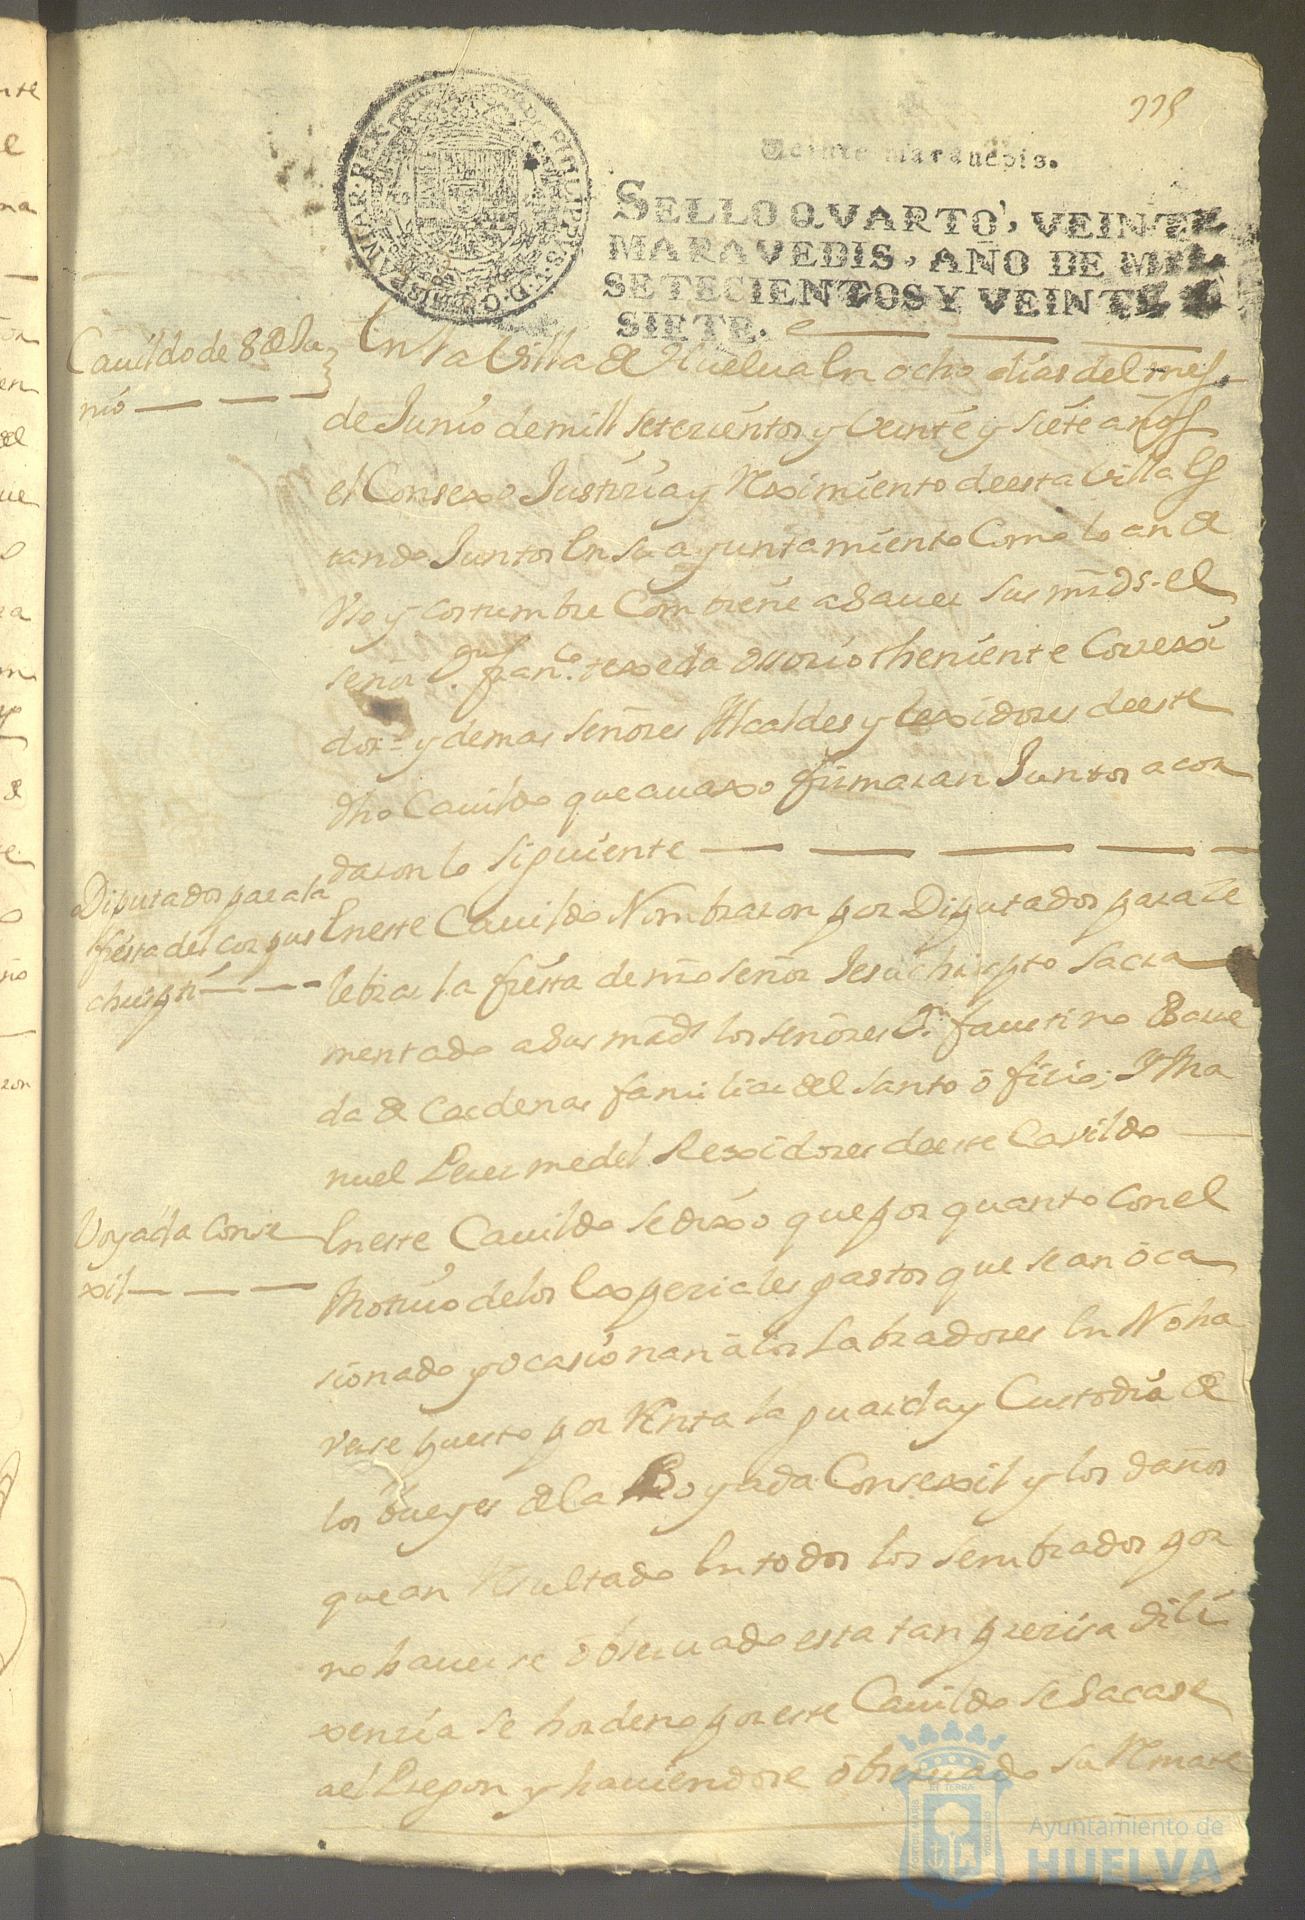 115
Veinte maravedis.
SELLO QVARTO, VEINTE
MARAVEDIS, AÑO DE MIL
SETECIENTOS Y VEINTE Y
SIETE.
PHILIPPUS V D G HISPANIAR REX
Cauildo de 8 de Ju
nio
En la Villa de Huelua En ocho dias del mes
de Junio de mill setecientos y Veinte y siete años
el Consexo Justicia y Reximiento deesta Villa Es
tando Juntos En su ayuntamiento Como lo an de
Vso y costumbre Combiene a Sauer sus mrds. el
señor Dn franco. texeda ossorio theniente Correxi
dor. y demas señores Alcaldes y Rexidores deeste
dho Cauildo que auaxo firmaran Juntos acor
daron lo siguiente
Diputados para la
fiesta del corpus
christi
En este Cauildo Nombraron por Diputados para Ce
lebrar la fiesta de nro señor Jesuchripto Sacra
mentado a Sus mrds los señores Dn faustino
da de Cardenas familiar del santo oficio; Y Ma
nuel Perez medel Rexidores deeste Cavildo
Voyada Conse
xil
En este Cauildo se dixo que por quanto Con el
Motiuo de los pastos que se an oca
sionado y ocasionan a los Labradores En No ha
verse puesto por Renta la guarda y Custodia de
los bueyes de la Boyada Consexil y los daños
que an Resultado En todos los sembrados por
no hauerse obseruado esta tan precisa dili
xencia se hordeno por este Cauildo se Sacase
a el Pregon y hauiendose obseruado su Remate
Ayuntamiento de
HUELVA